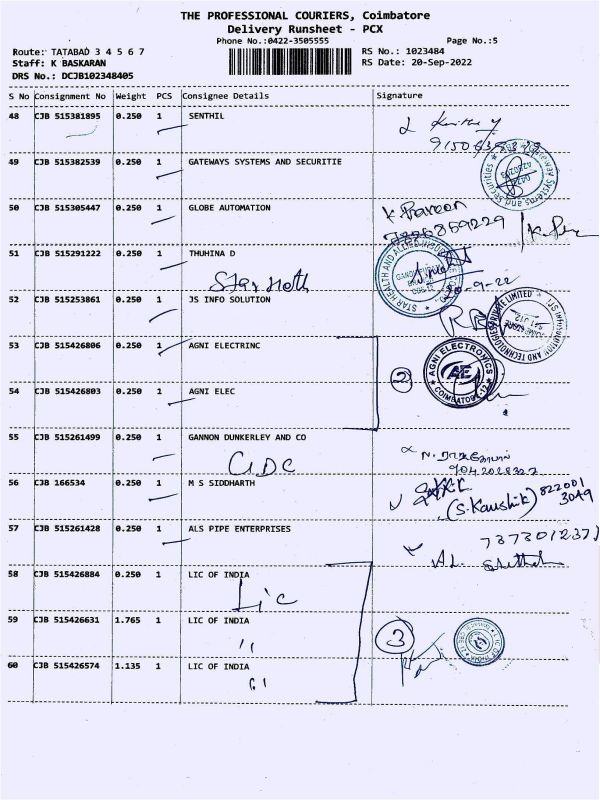 THE PROFESSIONAL COURIERS, Coimbatore
Delivery Runsheet - PCX
Phone No.:0422-3505555 Page No.:5
Route: TATABAD 3 4 5 6 7 RS No.: 1023484
Staff: K BASKARAN RS Date: 20-Sep-2022
DRS No.: DCJB102348405
S No Consignment No Weight PCS Consignee Details Signature
48 CJB 515381895 0.250 1 SENTHIL
49 CJB 515382539 0.250 1 GATEWAYS SYSTEMS AND SECURITIE
50 CJB 515305447 0.250 1 GLOBE AUTOMATION
K. Praveen
51 CJB 515291222 0.250 1 THUHINA D
STAR HEALTH AND ALLIED
52 CJB 515253861 0.250 1 JS INFO SOLUTION
53 CJB 515426806 0.250 1 AGNI ELECTRINC
AGNI ELECTRONICS
AE
COIMBATORE-12
2
54 CJB 515426803 0.250 1 AGNI ELEC
55 CJB 515261499 0.250 1 GANNON DUNKERLEY AND CO
56 CJB 166534 0.250 1 M S SIDDHARTH
(S.Kaushik) 822001
3049
57 CJB 515261428 0.250 1 ALS PIPE ENTERPRISES
7373012371
58 CJB 515426884 0.250 1 LIC OF INDIA
Lic
59 CJB 515426631 1.765 1 LIC OF INDIA
3
60 CJB 515426574 1.135 1 LIC OF INDIA